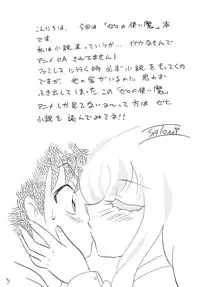 こんにちは、今回は「ゼロの使い魔」本
です。
私は小説業っていうか…イナカなもんで
アニメOAされてません!
ファミレスに行く時必ず小説をもってく
のですが 他の客がいるのに思わず
ふき出してしまったこの「ゼロの使い魔」
アニメしか見てないよ〜って方はゼヒ
小説を読んでみてな!!
3